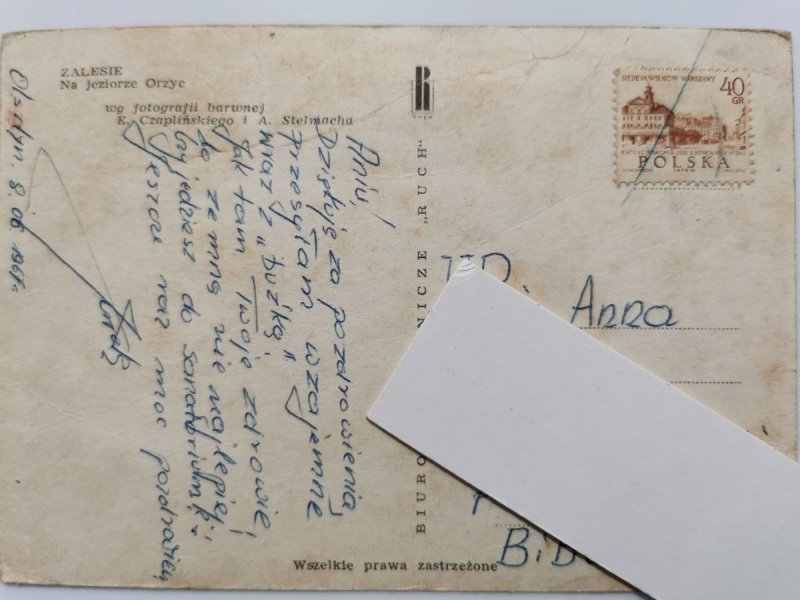 ZALESIE
Na jeziorze Orzyc
wg fotografii barwnej
E. Czaplińskiego i A. Stelmacha
Olsztyn. 8.06
Aniu!
Dziękuję za pozdrowienia,
przesyłam wzajemne
wraz z „Buźką"
Jak tam Twoje zdrowie,
ze mną nie najlepiej,
wyjedziesz do Sanatorium?
Jeszcze raz moc pozdrowień
BIURO
NICZE „RUCH"
Wszelkie prawa zastrzeżone
SIEDEM WIEKÓW WARSZAWY
40
GR
POLSKA
Anna